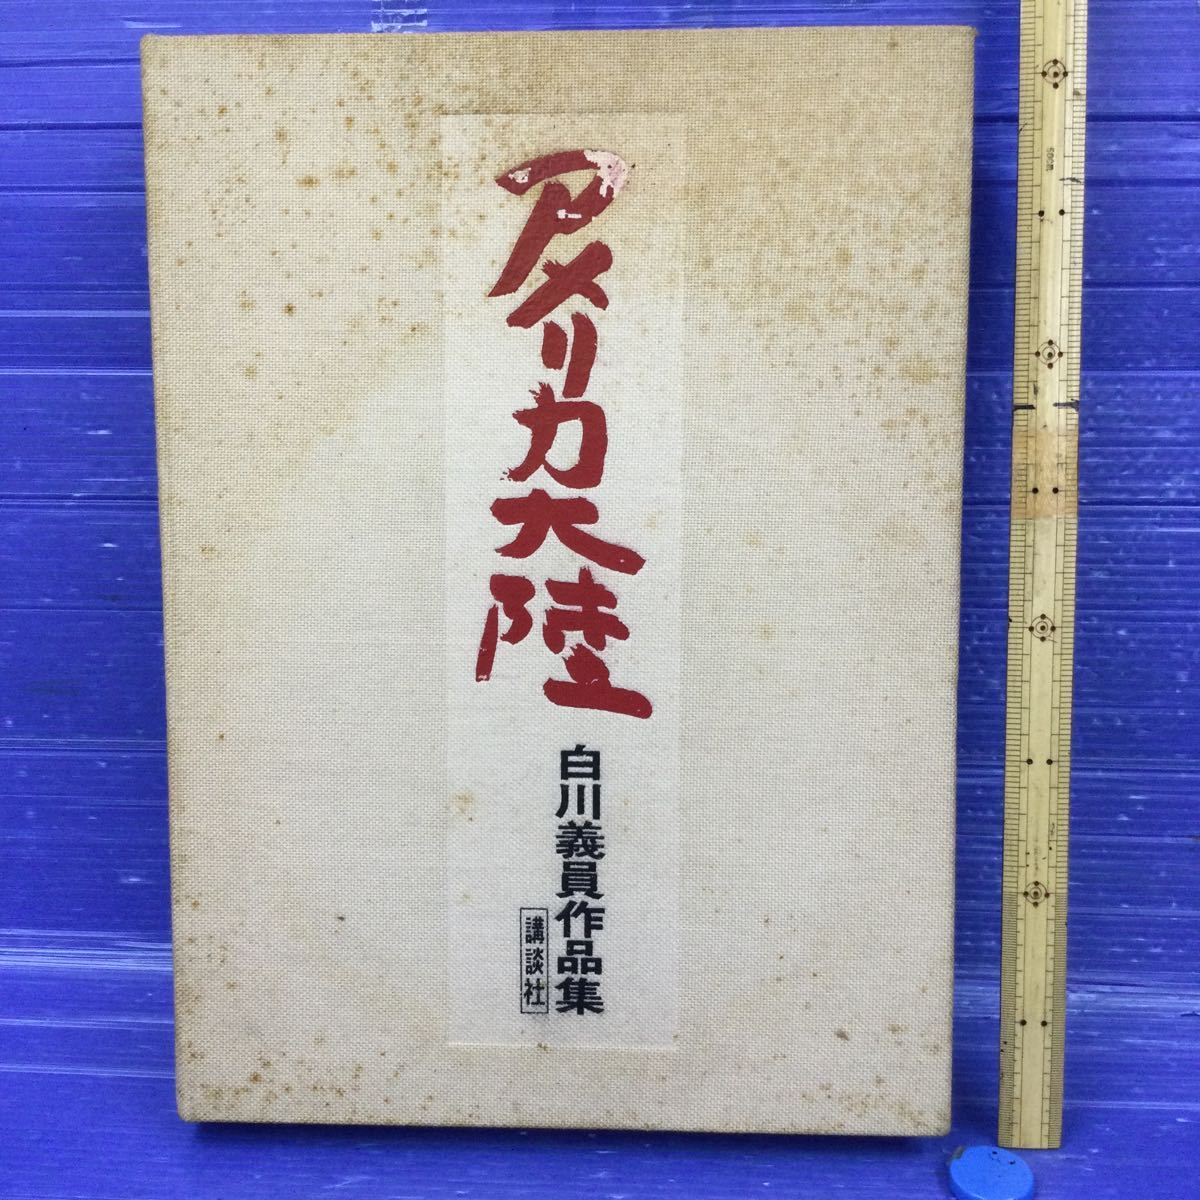 アメリカ大陸
白川義員作品集
講談社